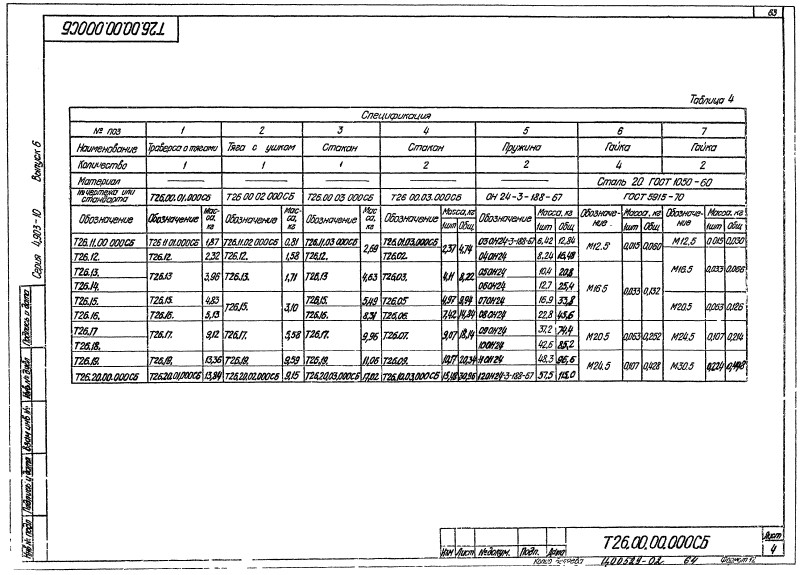 63
Т26.00.00.000СБ
Таблица 4
Спецификация
№ поз 1 2 3 4 5 6 7
Наименование Траверса с тягами Тяга с ушком Стакан Стакан Пружина Гайка Гайка
Количество 1 1 1 2 2 4 2
Материал Сталь 20 ГОСТ 1050-60
№ чертежа или стандарта Т26.00.01.000СБ Т26 00 02 000СБ Т26.00 03 000СБ Т26 00.03.000СБ ОН 24-3-188-67 ГОСТ 5915-70
Обозначение Обозначение Масса, кг Обозначение Масса, кг Обозначение Масса, кг Обозначение Масса, кг 1шт Общ Обозначение Масса, кг 1шт Общ Обозначение Масса, кг 1шт Общ Обозначение Масса, кг 1шт Общ
Т26.11.00 000СБ Т26 11 01.000СБ 1,97 Т26.11.02 000СБ 0,81 Т26.11.03 000СБ 2,69 Т26.01.03.000СБ 2,37 4,74 03 ОН24-3-188-67 6,42 12,84 М12.5 0,015 0,060 М12,5 0,015 0,030
Т26.12. Т26.12. 2,32 Т26.12. 1,58 Т26.12. Т26.02. 04ОН24 8,24 16,48
Т26.13. Т26.13 3,96 Т26.13. 1,71 Т26.13. 4,63 Т26.03. 4,11 8,22 05ОН24 10,4 20,8 М16.5 0,033 0,132 М16.5 0,033 0,066
Т26.14. 06ОН24 12,7 25,4
Т26.15. Т26.15. 4,83 Т26.15. 3,10 Т26.15. 5,49 Т26.05 4,97 9,94 07ОН24 16,9 33,8 М20.5 0,063 0,126
Т26.16. Т26.16. 5,13 Т26.16. 8,31 Т26.06. 7,42 14,84 08ОН24 22,8 45,6
Т26.17 Т26.17. 9,12 Т26.17. 5,58 Т26.17. 9,96 Т26.07. 9,07 18,14 09ОН24 37,2 74,4 М20.5 0,063 0,252 М24.5 0,107 0,214
Т26.18. 10ОН24 42,6 85,2
Т26.19. Т26.19. 13,36 Т26.19. 9,59 Т26.19. 11,06 Т26.09. 10,17 20,34 11ОН24 48,3 96,6 М24,5 0,107 0,428 М30.5 0,224 0,448
Т26.20.00.000СБ Т26.20.01.000СБ 13,94 Т26.20.02.000СБ 9,15 Т26.20.03.000СБ 17,02 Т26.10.03.000СБ 15,48 30,96 12ОН24-3-188-67 57,5 115,0
Серия 4.903-10 Выпуск 6
Подпись и дата
Взам инв №
Подпись и дата
Инв № подл
Изм Лист № докум. Подп. Дата
Т26.00.00.000СБ
Лист
4
64